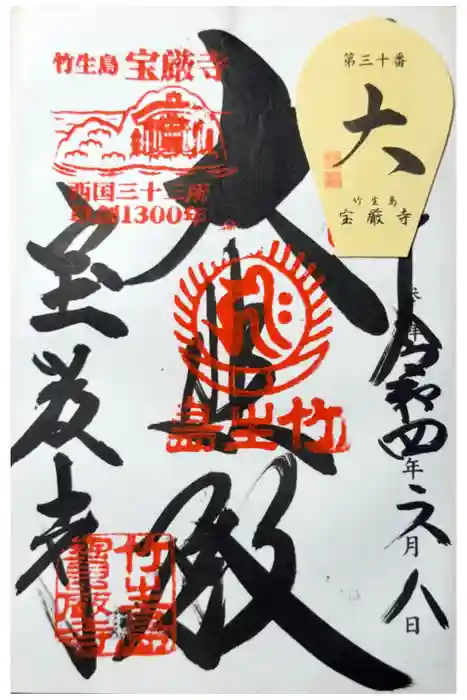 竹生島 宝厳寺
西国三十三所
草創1300年
第三十番
大
竹生島
宝厳寺
令和四年六月八日
大悲殿
竹生島
宝厳寺
竹生島
寶厳寺